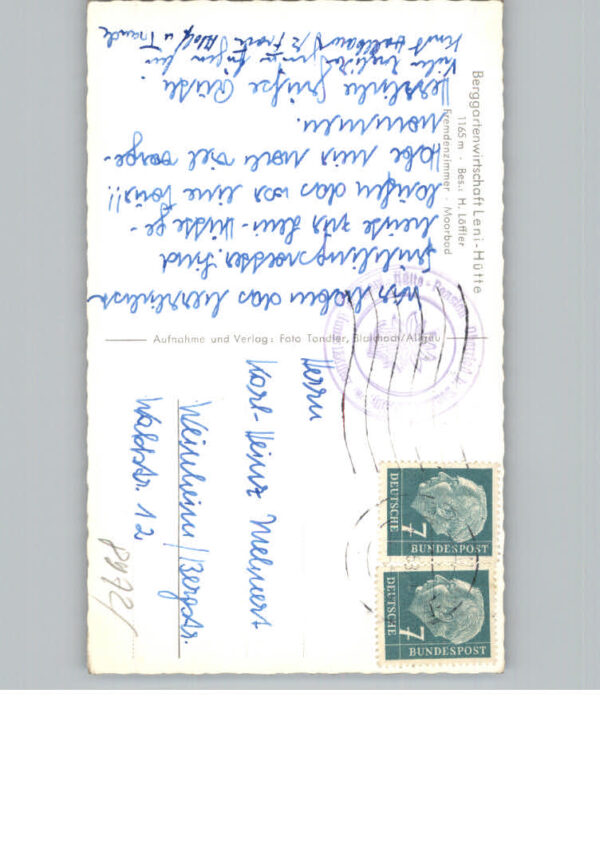 Berggartenwirtschaft Leni-Hütte
1165 m · Bes.: H. Löffler
Fremdenzimmer · Moorbad
Wir haben das herrlichste
Frühlingswetter. Sind
heute zur Leni-Hütte ge-
laufen das war eine Tour!!
Habe mir noch viel vorge-
nommen.
Herzliche Grüße
Viele
Aufnahme und Verlag: Foto Tondler, Blaichach/Allgäu
Herrn
Karl-Heinz Mehnert
Weinheim/Bergstr.
Waldstr. 12
8972/
7
DEUTSCHE
BUNDESPOST
7
DEUTSCHE
BUNDESPOST